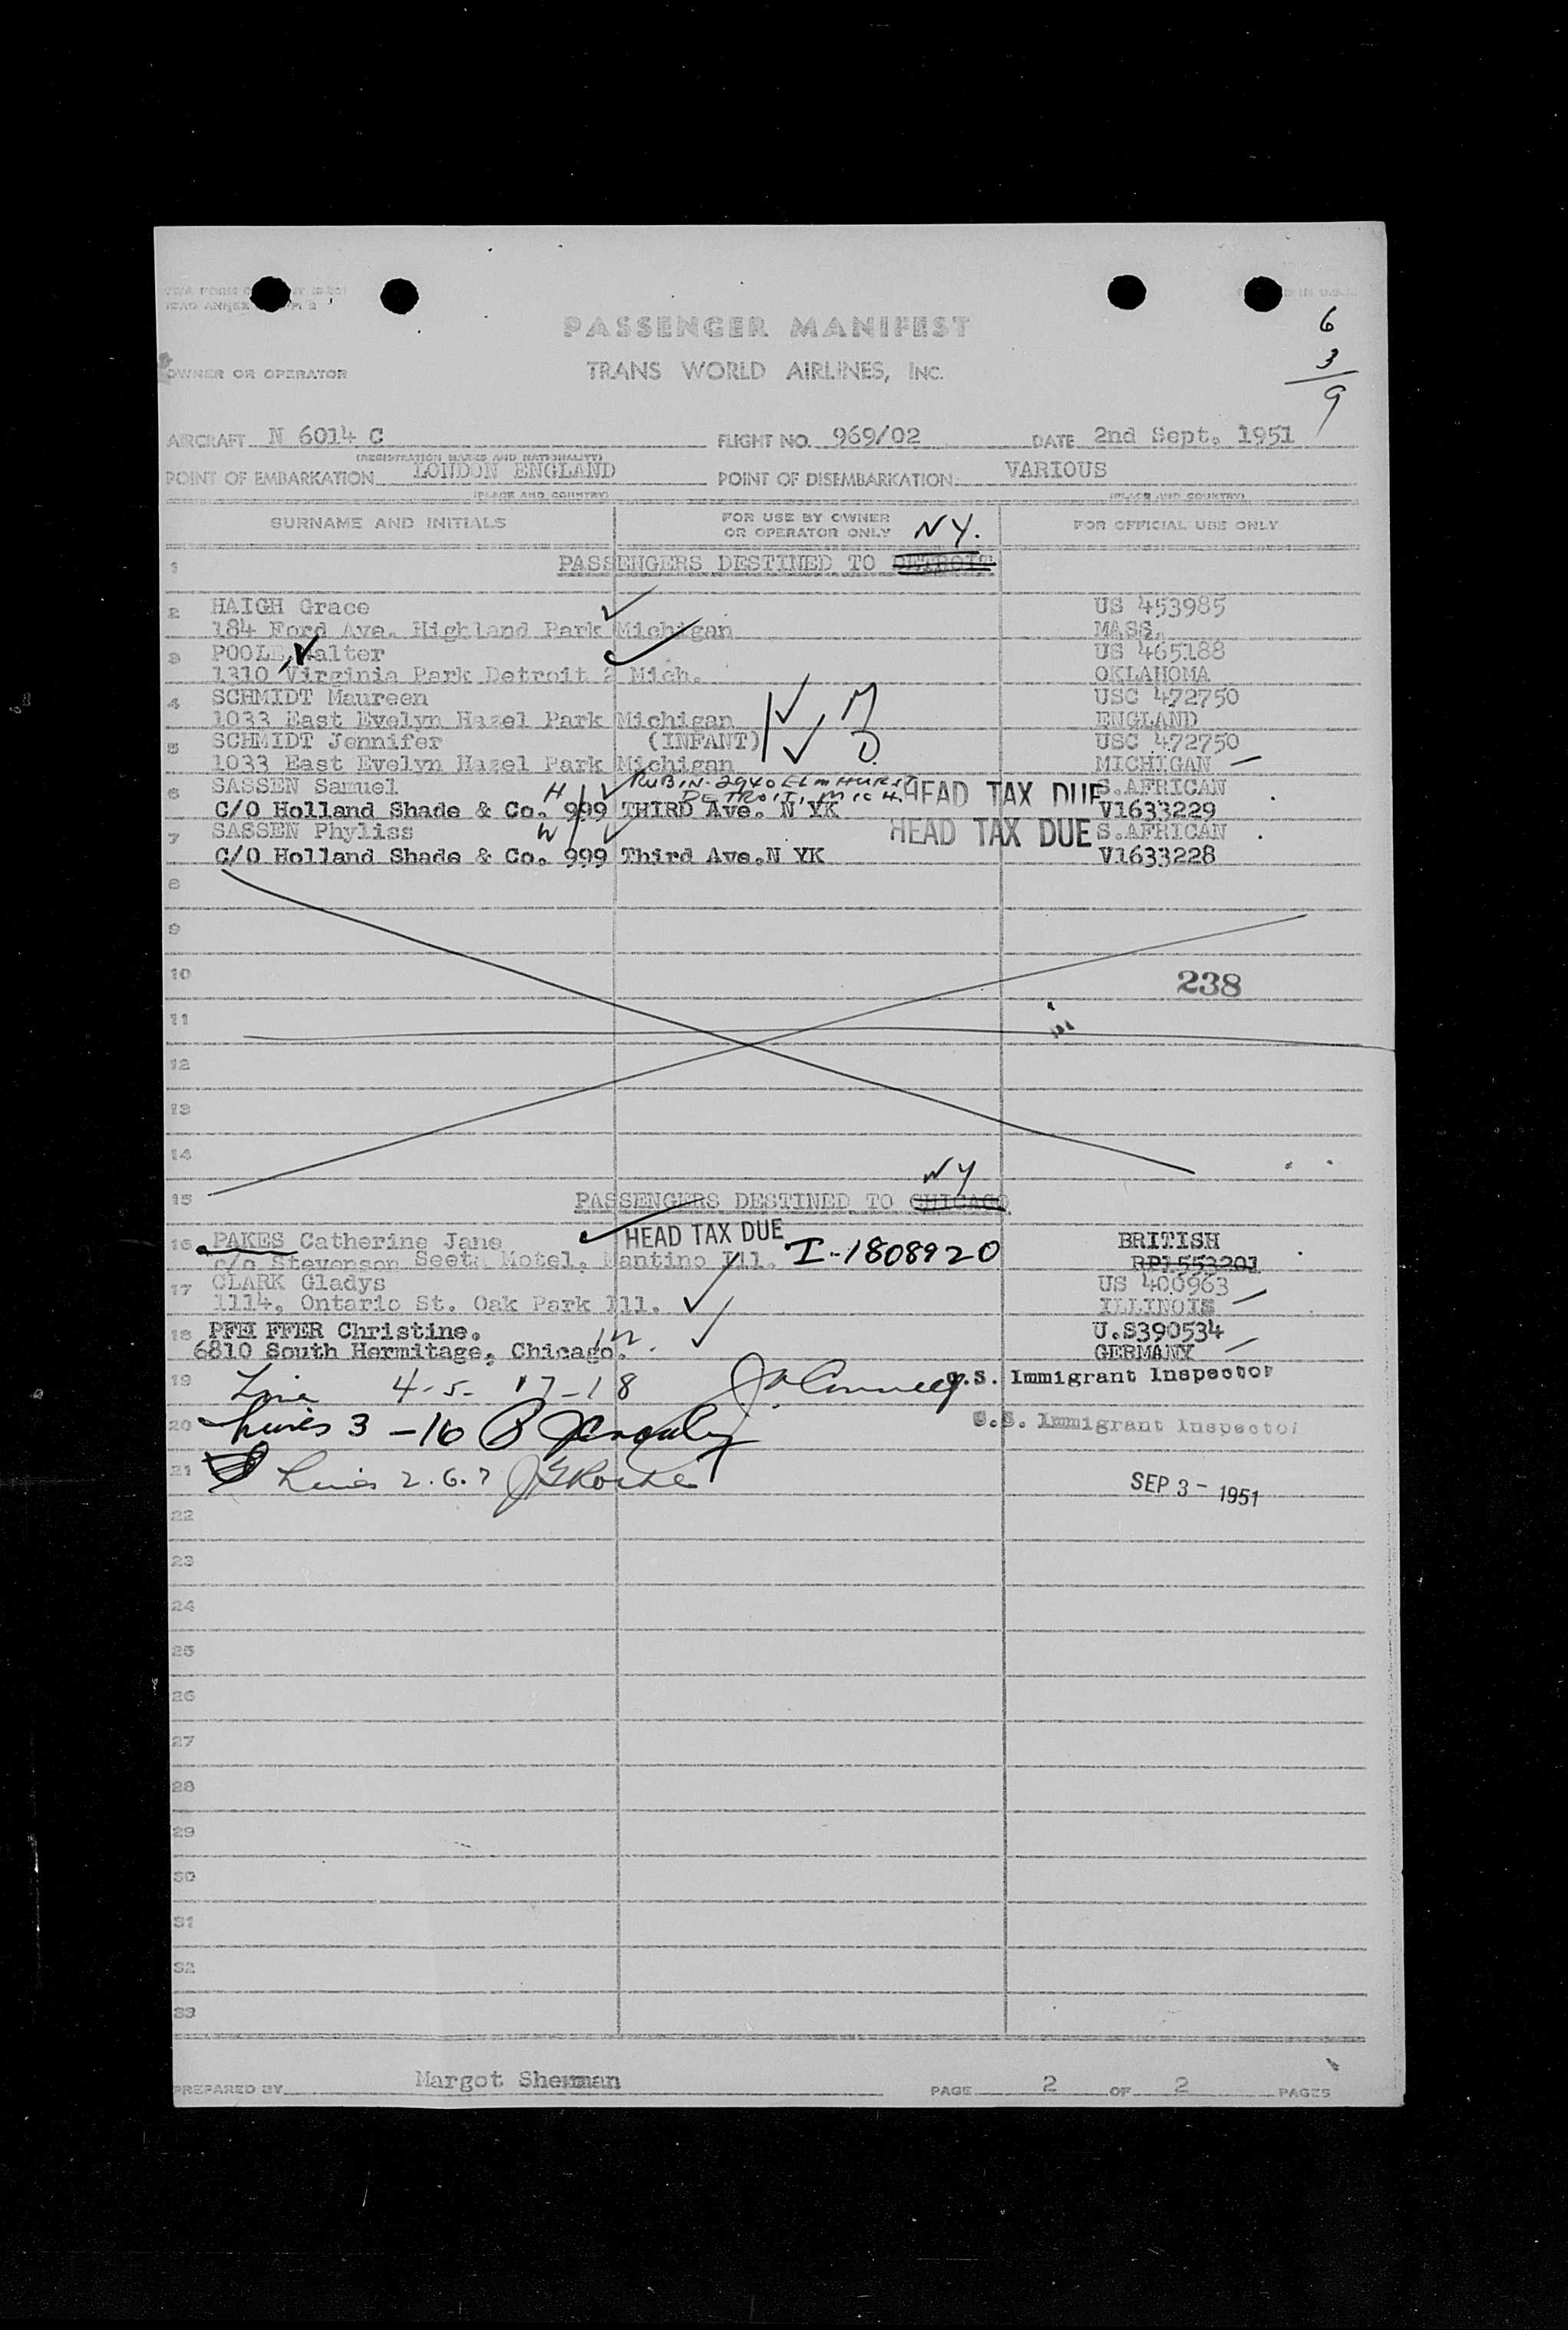 ICAO ANNEX
6
3
9
PASSENGER MANIFEST
OWNER OR OPERATOR
TRANS WORLD AIRLINES, INC.
AIRCRAFT N 6014 C FLIGHT NO. 969/02 DATE 2nd Sept. 1951
(REGISTRATION MARKS AND NATIONALITY)
POINT OF EMBARKATION LONDON ENGLAND POINT OF DISEMBARKATION VARIOUS
(PLACE AND COUNTRY) (PLACE AND COUNTRY)
SURNAME AND INITIALS FOR USE BY OWNER OR OPERATOR ONLY NY. FOR OFFICIAL USE ONLY
1 PASSENGERS DESTINED TO DETROIT
2 HAIGH Grace US 453985
184 Ford Ave. Highland Park Michigan MASS.
3 POOLE, Walter US 465188
1310 Virginia Park Detroit 2 Mich. OKLAHOMA
4 SCHMIDT Maureen M USC 472750
1033 East Evelyn Hazel Park Michigan ENGLAND
5 SCHMIDT Jennifer (INFANT) D USC 472750
1033 East Evelyn Hazel Park Michigan MICHIGAN
6 SASSEN Samuel H RUBIN. 2940 ELMHURST HEAD TAX DUE S.AFRICAN
DETROIT, MICH.
C/O Holland Shade & Co. 999 THIRD Ave. N YK V1633229
7 SASSEN Phyliss W HEAD TAX DUE S.AFRICAN
C/O Holland Shade & Co. 999 Third Ave.N YK V1633228
8
9
10 238
11
12
13
14
NY
15 PASSENGERS DESTINED TO CHICAGO
16 PAKES Catherine Jane HEAD TAX DUE I-1808920 BRITISH
c/o Stevenson Seeta Motel, Mantino Ill. RP1553201
17 CLARK Gladys US 400963
1114, Ontario St. Oak Park Ill. ILLINOIS
18 PFEI FFER Christine. U.S390534
6810 South Hermitage, Chicago. GERMANY
19 Line 4-5-17-18 U.S. Immigrant Inspector
20 Lines 3-16 U.S. Immigrant Inspector
21 Lines 2.6.7 SEP 3 - 1951
22
23
24
25
26
27
28
29
30
31
32
33
PREPARED BY Margot Sherman PAGE 2 OF 2 PAGES